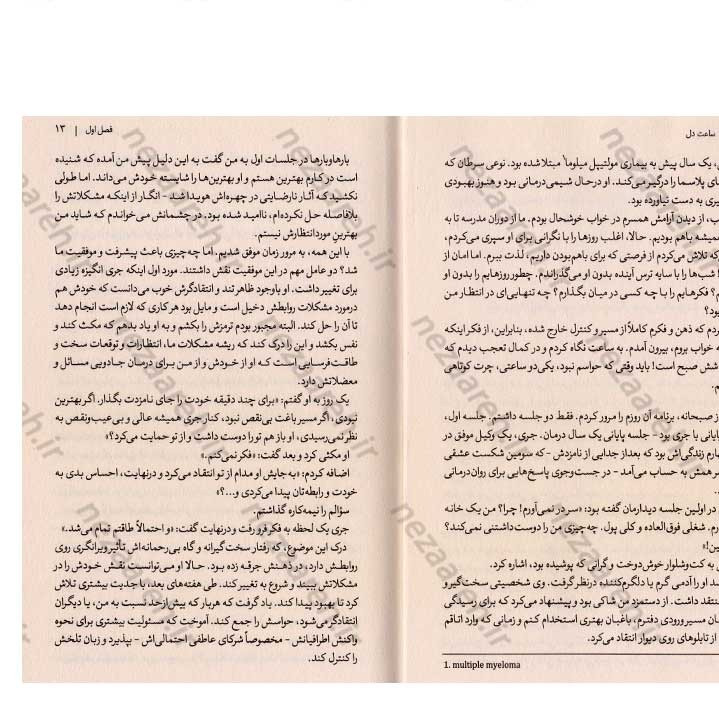 ساعت دل
، یک سال پیش به بیماری مولتیپل میلوما۱ مبتلا شده بود. نوعی سرطان که
ای پلاسما را درگیر می‌کند. او درحال شیمی‌درمانی بود و هنوز بهبودی
یری به دست نیاورده بود.
ب، از دیدن آرامش همسرم در خواب خوشحال بودم. ما از دوران مدرسه تا به
میشه باهم بودیم. حالا، اغلب روزها را با نگرانی برای او سپری می‌کردم،
که تلاش می‌کردم از فرصتی که برای باهم‌بودن داریم، لذت ببرم. اما امان از
شب‌ها را با سایه ترس آینده بدون او می‌گذراندم. چطور روزهایم را بدون او
م؟ فکرهایم را با چه کسی در میان بگذارم؟ چه تنهایی‌ای در انتظار من
ود؟
ردم که ذهن و فکرم کاملاً از مسیر و کنترل خارج شده، بنابراین، از فکر اینکه
ه خواب بروم، بیرون آمدم. به ساعت نگاه کردم و در کمال تعجب دیدم که
شش صبح است! باید وقتی که حواسم نبود، یکی‌دو ساعتی، چرت کوتاهی
م.
از صبحانه، برنامه آن روزم را مرور کردم. فقط دو جلسه داشتم. جلسه اول،
ایانی با جری بود - جلسه پایانی یک سال درمان. جری، یک وکیل موفق در
هارم زندگی‌اش بود که بعد از جدایی از نامزدش - که سومین شکست عشقی
سر همش به حساب می‌آمد - در جست‌وجوی پاسخ‌هایی برای روان‌درمانی
در اولین جلسه دیدارمان گفته بود: «سر در نمی‌آورم! چرا؟ من یک خانه
رم. شغلی فوق‌العاده و کلی پول. چه‌چیزی من را دوست‌داشتنی نمی‌کند؟
ین!»
ی به کت‌وشلوار خوش‌دوخت و گرانی که پوشیده بود، اشاره کرد.
د او را آدمی گرم یا دلگرم‌کننده درنظر گرفت. وی شخصیتی سخت‌گیر و
منتقد داشت. از دستمزد من شاکی بود و پیشنهاد می‌کرد که برای رسیدگی
ان مسیر ورودی دفترم، باغبان بهتری استخدام کنم و زمانی که وارد اتاقم
از تابلوهای روی دیوار انتقاد می‌کرد.
1. multiple myeloma
فصل اول | ۱۳
بارهاوبارها در جلسات اول به من گفت به این دلیل پیش من آمده که شنیده
است در کارم بهترین هستم و او بهترین‌ها را شایسته خودش می‌داند. اما طولی
نکشید که آثار نارضایتی در چهره‌اش هویدا شد - انگار از اینکه مشکلاتش را
بلافاصله حل نکرده‌ام، ناامید شده بود. در چشمانش می‌خواندم که شاید من
بهترینِ موردانتظارش نیستم.
با این همه، به مرور زمان موفق شدیم. اما چه‌چیزی باعث پیشرفت و موفقیت ما
شد؟ دو عامل مهم در این موفقیت نقش داشتند. مورد اول اینکه جری انگیزه زیادی
برای تغییر داشت. او باوجود ظاهر تند و انتقادگرش خوب می‌دانست که خودش هم
درمورد مشکلات روابطش دخیل است و مایل بود هر کاری که لازم است انجام دهد
تا آن را حل کند. البته مجبور بودم ترمزش را بکشم و به او یاد بدهم که مکث کند و
نفس بکشد و این را درک کند که ریشه مشکلات ما، انتظارات و توقعات سخت و
طاقت‌فرسایی است که او از خودش و از من برای درمان جادویی مسائل و
معضلاتش دارد.
یک روز به او گفتم: «برای چند دقیقه خودت را جای نامزدت بگذار. اگر بهترین
نبودی، اگر مسیر باغت بی‌نقص نبود، کنار جری همیشه عالی و بی‌عیب‌ونقص به
نظر نمی‌رسیدی، او باز هم تو را دوست داشت و از تو حمایت می‌کرد؟»
او مکثی کرد و بعد گفت: «فکر نمی‌کنم.»
اضافه کردم: «به‌جایش او مدام از تو انتقاد می‌کرد و درنهایت، احساس بدی به
خودت و رابطه‌تان پیدا می‌کردی و...؟»
سؤالم را نیمه‌کاره گذاشتم.
جری یک لحظه به فکر فرو رفت و درنهایت گفت: «و احتمالاً طاقتم تمام می‌شد.»
درک این موضوع، که رفتار سخت‌گیرانه و گاه بی‌رحمانه‌اش تأثیر ویرانگری روی
روابطش دارد، در ذهنش جرقه زده بود. حالا او می‌توانست نقش خودش را در
مشکلاتش ببیند و شروع به تغییر کند. طی هفته‌های بعد، با جدیت بیشتری تلاش
کرد تا بهبود پیدا کند. یاد گرفت که هربار که بیش‌ازحد نسبت به من، یا دیگران
انتقادگر می‌شود، حواسش را جمع کند. آموخت که مسئولیت بیشتری برای نحوه
واکنش اطرافیانش - مخصوصاً شرکای عاطفی احتمالی‌اش - بپذیرد و زبان تلخش
را کنترل کند.
nezaareh.ir